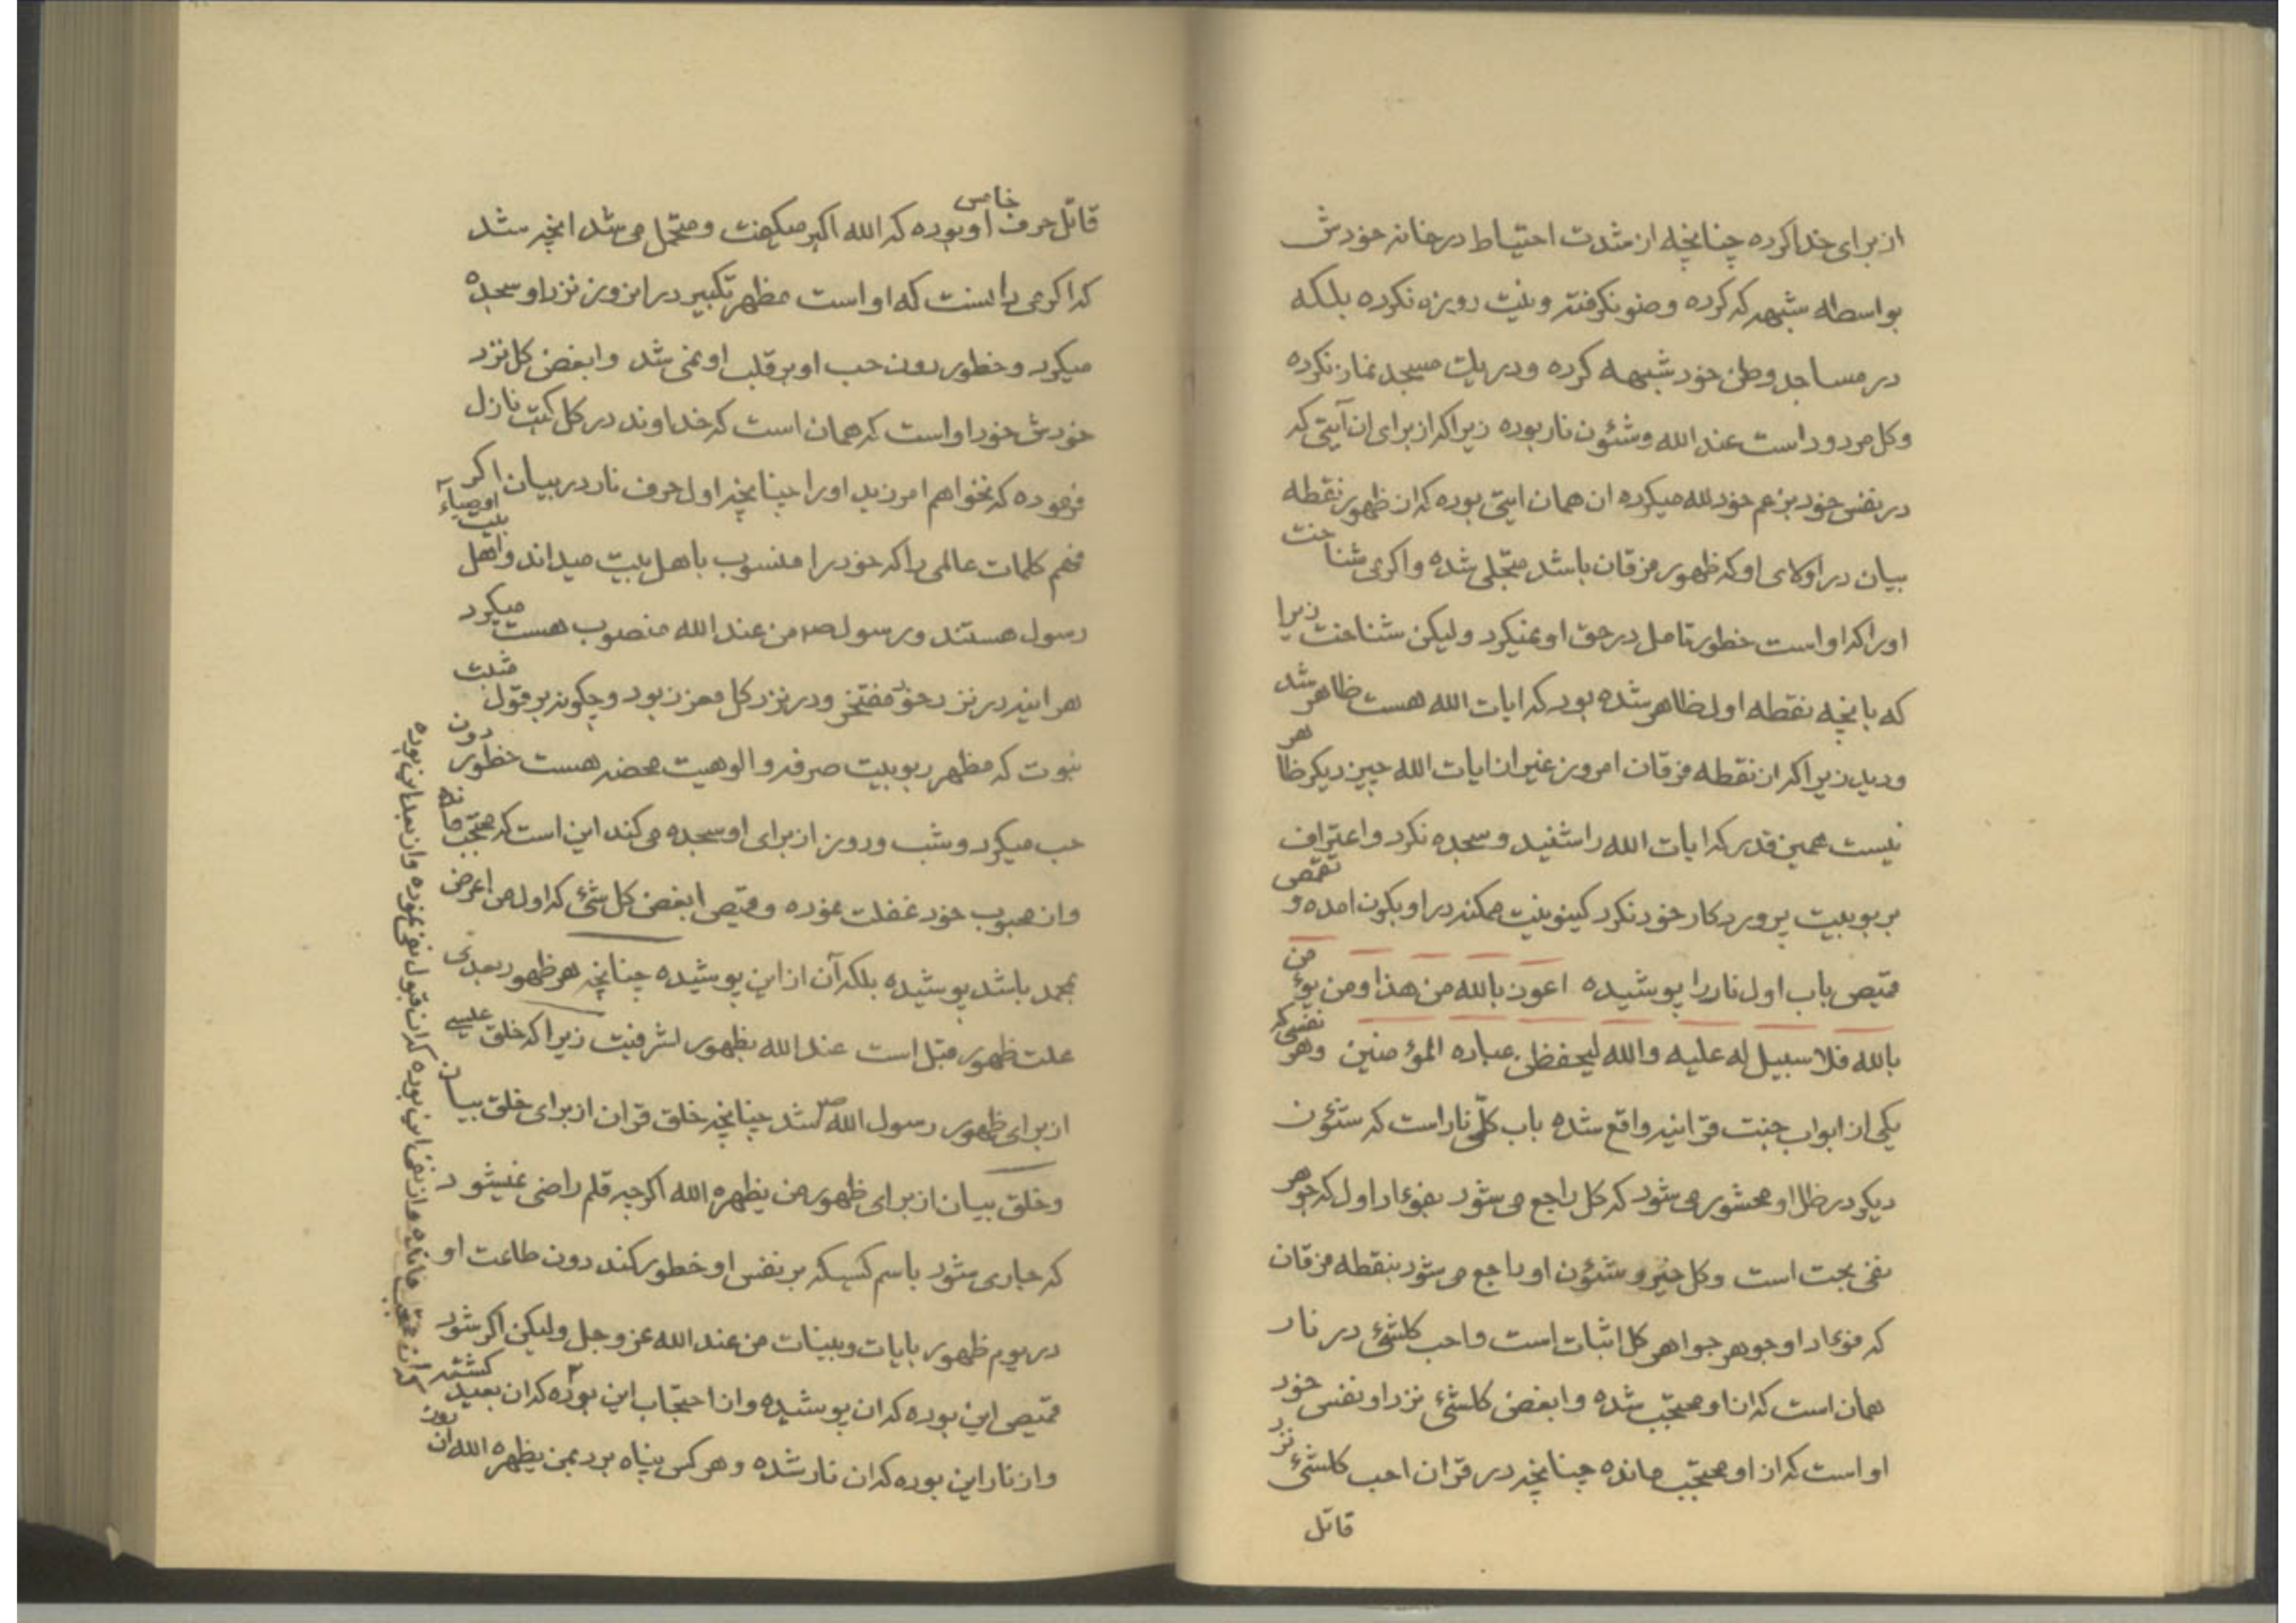 از برای خدا کرده چنانچه از شدت احتیاط در خانه خودش
بواسطه شبهه که کرده وضو نکرفته ونیت روزه نکرده بلکه
در مساجد وطن خود شبهه کرده ودر یک مسجد نماز نکرده
وکل مردود است عند الله وشئون نار بوده زیرا که از برای ان آیتی که
در نفس خود بزعم خود لله میکرده ان همان ایتی بوده که از ظهور نقطه
بیان در اولای او که ظهور فرقان باشد متجلی شده واکر می شناخت
اورا که او است خطور تامل در حق او نمیکرد ولیکن نشناخت زیرا
که بانچه نقطه اول ظاهر شده بود که ایات الله هست ظاهر شد
ودید زیرا که از نقطه فرقان امروز غیر از ایات الله چیز دیکر ظاهر
نیست همین قدر که ایات الله را شنید وسجده نکرد واعتراف
بربوبیت پروردکار خود نکرد کینونیت ممکنه در او بکون امده و تقمص
قمیص باب اول نار را پوشیده اعوذ بالله من هذا ومن یؤمن
بالله فلا سبیل له علیه والله لیحفظن عباده المؤمنین وهر نفسی که
یکی از ابواب جنت قرانیه واقع شده باب کلّی نار است که شئون
دیکر در ظل او محشور می شود که کل راجع می شود بفؤاد اول که جوهر
نفی بحت است وکل خیر وشئون او راجع می شود بنقطه فرقان
که فؤاد او جوهر جواهر کل اثبات است واحب کلشئ در نار
همان است که از او محتجب شده وابغض کلشئ نزد او نفس خود
او است که از او محتجب مانده چنانچه در قران احب کلشئ نزد
قاتل
قاتل حرف خامس او بوده که الله اکبر میکفت ومتحمل می شد انچه شد
که اکر می دانست که او است مظهر تکبیر در انروز نزد او سجده
میکرد وخطور دون حب او بر قلب او نمی شد وابغض کل نزد
خودش خود او است که همان است که خداوند در کل کتب نازل
فرموده که نخواهم امرزید اورا چنانچه اول حرف نار در بیان اکر
فهم کلمات عالمی را که خود را منسوب باهل بیت میداند واهل بیت اوصیاء
رسول هستند ورسول ص من عند الله منصوب هست میکرد
هر اینه در نزد خود مفتخر ودر نزد کل معزز بود وچکونه بر قول مثبت
نبوت که مظهر ربوبیت صرفه والوهیت محضه هست خطور دون
حب میکرد وشب وروز از برای او سجده می کند این است که محتجب مانده
واز محبوب خود غفلت نموده وقمیص ابغض کل شئ که اول من اعرض
بمحمد باشد پوشیده بلکه آن از این پوشیده چنانچه هر ظهور بعدی
علت ظهور قبل است عند الله بظهور اشرفیت زیرا که خلق عیسی
از برای ظهور رسول الله ص شد چنانچه خلق قران از برای خلق بیان
وخلق بیان از برای ظهور من یظهره الله اکرچه قلم راضی نمیشود
که جاری شود باسم کسیکه بر نفس او خطور کند دون طاعت او
در یوم ظهور بایات وبینات من عند الله عز وجل ولیکن اکر شود
قمیص این بوده که ان پوشیده واز احتجاب این بوده که ان بعید کشته
واز نار این بوده که ان نار شده وهر کس پناه برد بمن یظهره الله از دون
که ان محتجب مانده واز نفی این بوده که ان قبول نفی نموده واز بعد این بوده